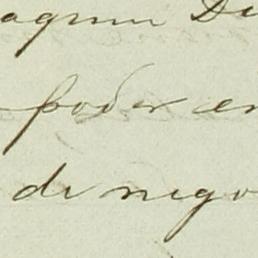 aquim Di
poder en
de nego